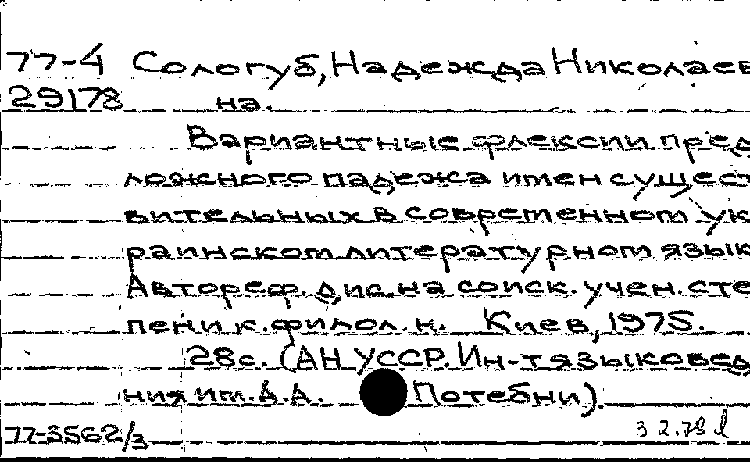 77-4 Сологуб, Надежда Николаев
29178 на.
Вариантные флексии пред
ложного падежа имен сущест
вительных в современном ук
раинском литературном язык
Автореф. дис. на соиск. учен. сте
пени к. филол. н. Киев, 1975.
28с. (АН УССР. Ин-т языковед
ния им. А.А. Потебни).
77-3562/3